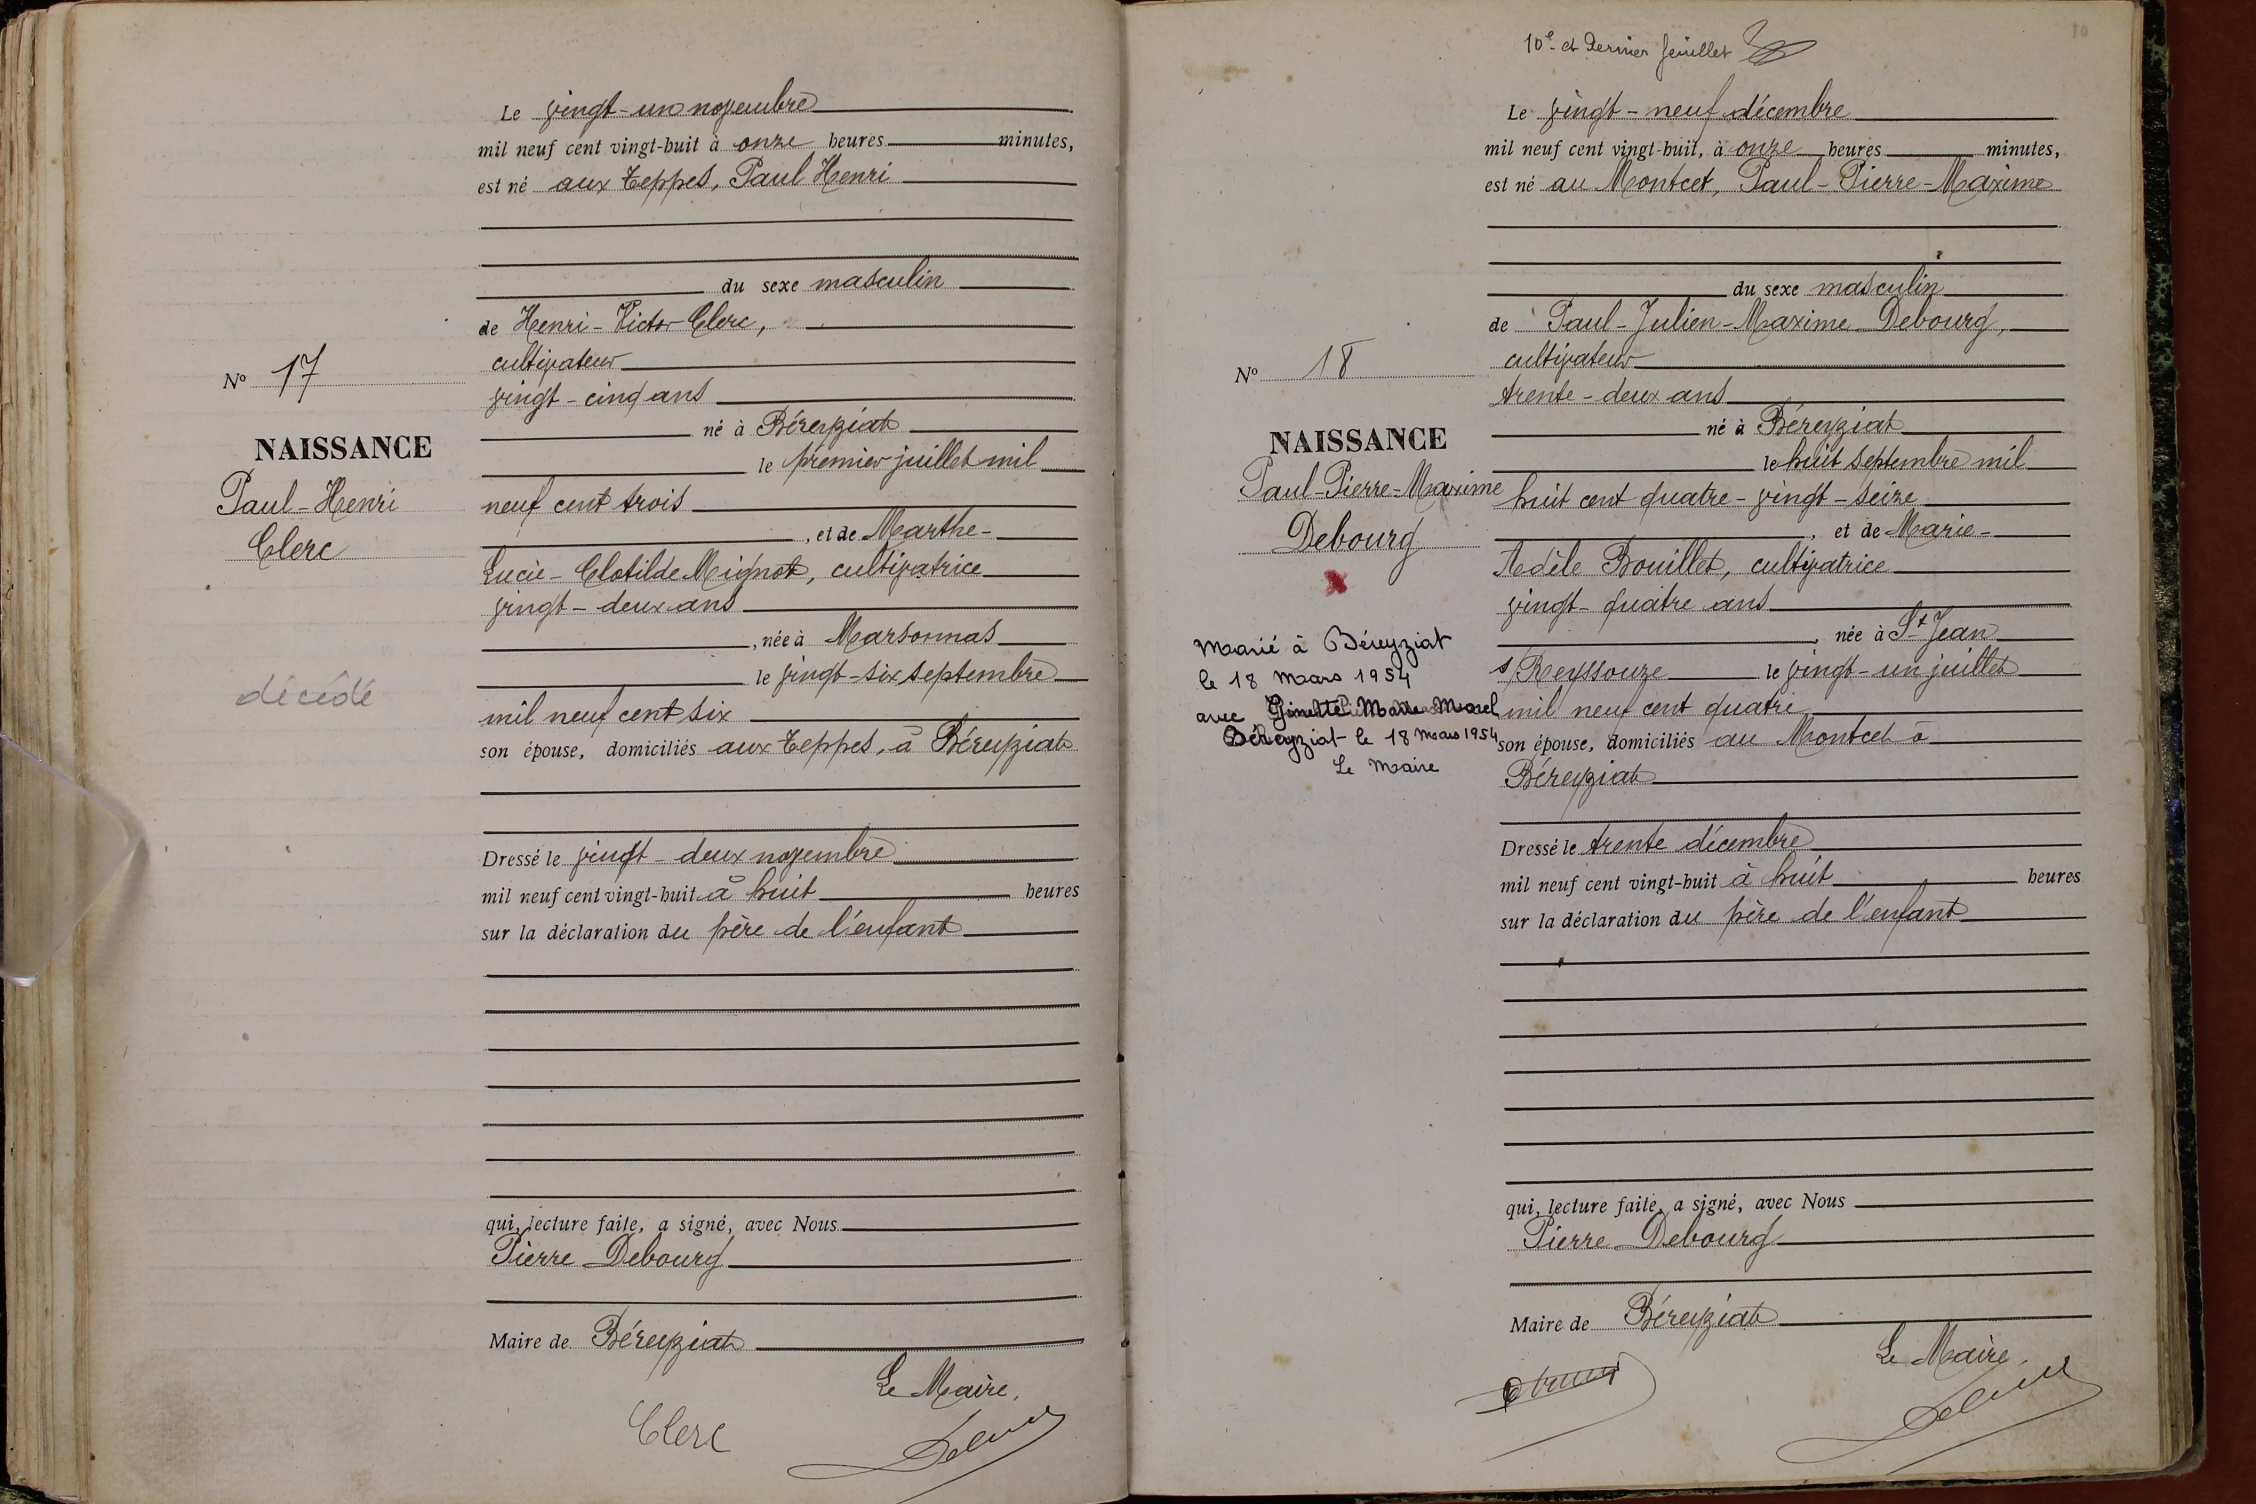 Le vingt-un novembre
mil neuf cent vingt-huit à onze heures minutes,
est né aux Teppes, Paul Henri
du sexe masculin
de Henri-Victor Clerc,
cultivateur
vingt-cinq ans
né à Béreyziat
le premier juillet mil
neuf cent trois
, et de Marthe-
Lucie-Clotilde Mignot, cultivatrice
vingt-deux ans
, née à Marsonnas
le vingt-six septembre
mil neuf cent six
son épouse, domiciliés aux Teppes, à Béreyziat
Dressé le vingt-deux novembre
mil neuf cent vingt-huit à huit heures
sur la déclaration du père de l'enfant
qui, lecture faite, a signé, avec Nous
Pierre Debourg
Maire de Béreyziat
Le Maire,
Clerc
No 17
NAISSANCE
Paul-Henri
Clerc
décédé
10
10e et Dernier feuillet
Le vingt-neuf décembre
mil neuf cent vingt-huit, à onze heures minutes,
est né au Montcet, Paul-Pierre-Maxime
du sexe masculin
de Paul-Julien-Maxime Debourg,
cultivateur
trente-deux ans
né à Béreyziat
le huit septembre mil
huit cent quatre-vingt-seize
, et de Marie-
Adèle Bouillet, cultivatrice
vingt-quatre ans
, née à St Jean
s/Reyssouze le vingt-un juillet
mil neuf cent quatre
son épouse, domiciliés au Montcet à
Béreyziat
Dressé le trente décembre
mil neuf cent vingt-huit à huit heures
sur la déclaration du père de l'enfant
qui, lecture faite, a signé, avec Nous
Pierre Debourg
Maire de Béreyziat
Le Maire.
No 18
NAISSANCE
Paul-Pierre-Maxime
Debourg
Marié à Béreyziat
le 18 Mars 1954
avec Ginette Marie Morel
Béreyziat le 18 Mars 1954
Le Maire